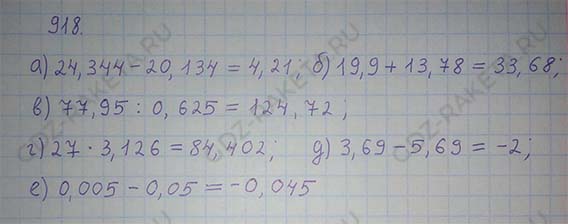 918.
а) 24,344 - 20,134 = 4,21; б) 19,9 + 13,78 = 33,68;
в) 77,95 : 0,625 = 124,72;
г) 27 · 3,126 = 84,402; д) 3,69 - 5,69 = -2;
е) 0,005 - 0,05 = -0,045
GDZ-RAKETA.RU